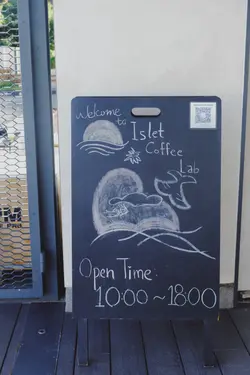 Welcome
to Islet
Coffee
Lab
Open Time:
10:00~18:00